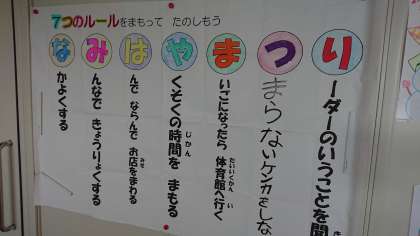 7つのルールをまもって たのしもう
りーダーのいうことを聞
つまらないケンカをしな
まいごになったら 体育館へ行く
たいいくかん い
やくそくの時間を まもる
じかん
はんで ならんで お店をまわる
みせ
みんなで きょうりょくする
なかよくする